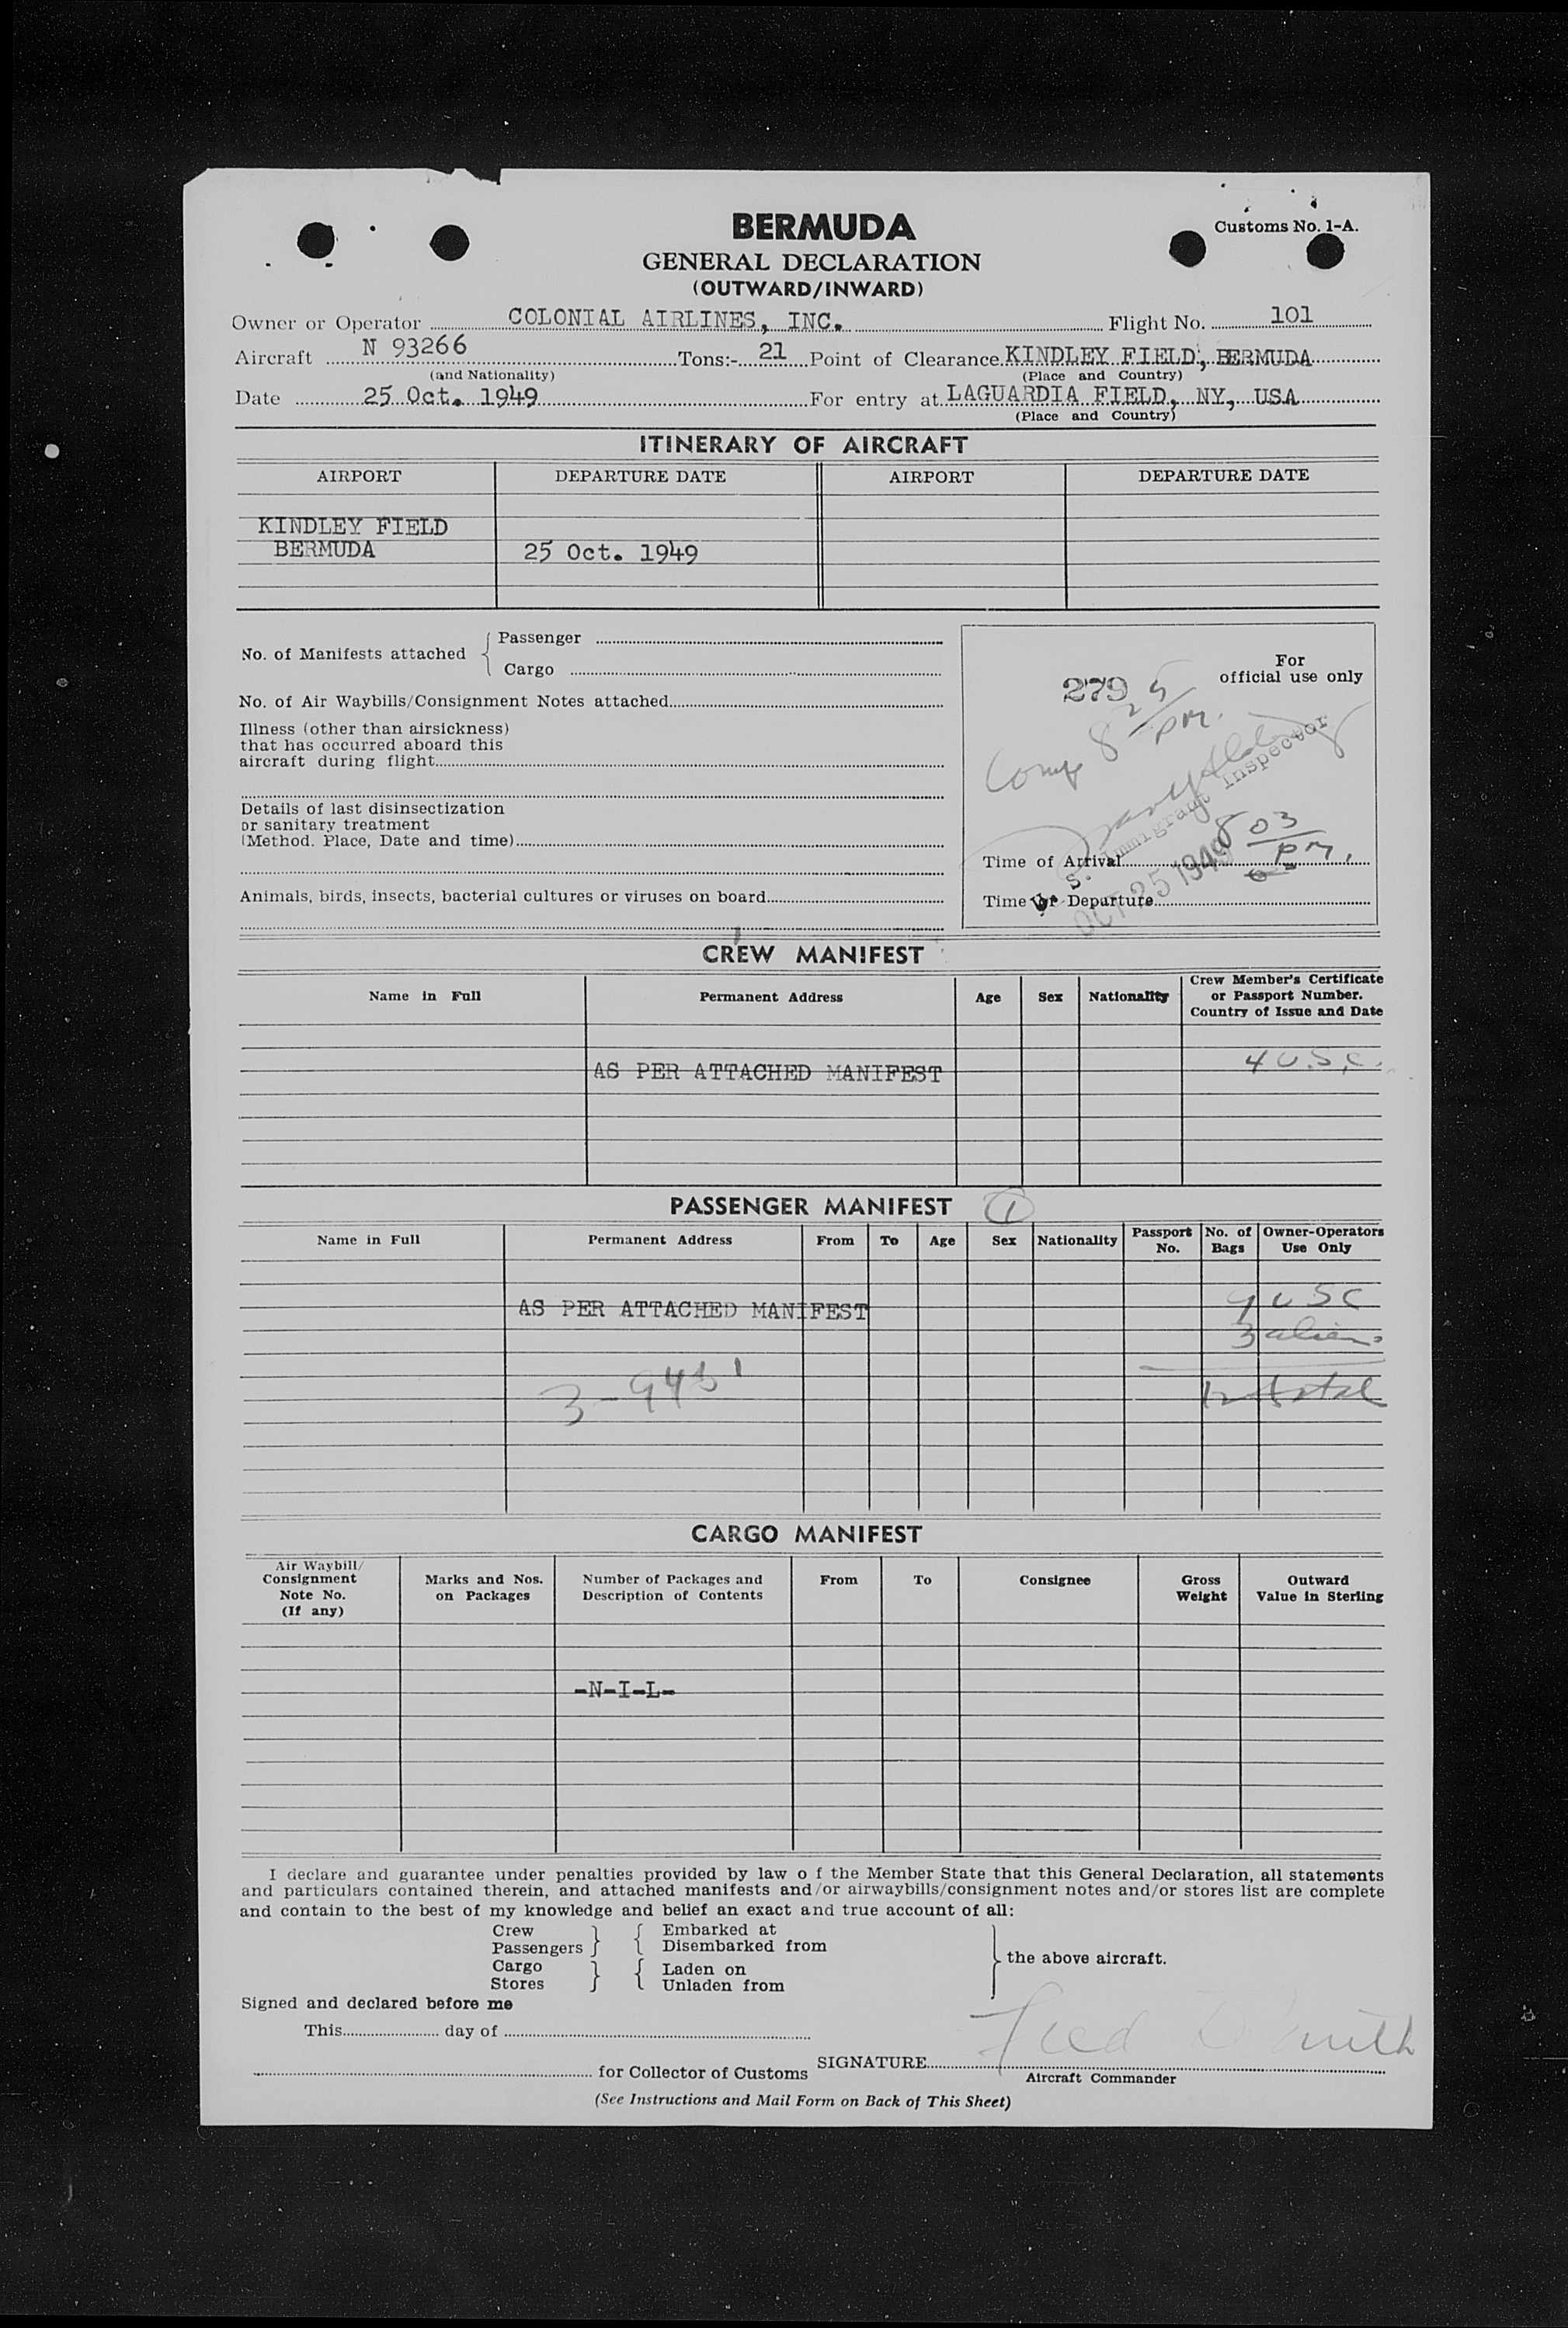 Customs No. 1-A.
BERMUDA
GENERAL DECLARATION
(OUTWARD/INWARD)
Owner or Operator COLONIAL AIRLINES, INC. Flight No. 101
Aircraft N 93266 Tons:- 21 Point of Clearance KINDLEY FIELD, BERMUDA
(and Nationality) (Place and Country)
Date 25 Oct. 1949 For entry at LAGUARDIA FIELD, NY, USA
(Place and Country)
ITINERARY OF AIRCRAFT
AIRPORT DEPARTURE DATE AIRPORT DEPARTURE DATE
KINDLEY FIELD
BERMUDA 25 Oct. 1949
No. of Manifests attached Passenger
Cargo
No. of Air Waybills/Consignment Notes attached
Illness (other than airsickness)
that has occurred aboard this
aircraft during flight
Details of last disinsectization
or sanitary treatment
(Method. Place, Date and time)
Animals, birds, insects, bacterial cultures or viruses on board
For
official use only
279
8 25 PM.
U. S. Immigrant Inspector
OCT 25 1949
Time of Arrival 8 03 PM.
Time of Departure
CREW MANIFEST
Name in Full Permanent Address Age Sex Nationality Crew Member's Certificate
or Passport Number.
Country of Issue and Date
AS PER ATTACHED MANIFEST 4 U.S.C.
PASSENGER MANIFEST 1
Name in Full Permanent Address From To Age Sex Nationality Passport No. No. of Bags Owner-Operators Use Only
AS PER ATTACHED MANIFEST 9 USC
3 aliens
12 total
CARGO MANIFEST
Air Waybill/
Consignment
Note No.
(If any)
Marks and Nos.
on Packages
Number of Packages and
Description of Contents
From To Consignee
Gross
Weight
Outward
Value in Sterling
-N-I-L-
I declare and guarantee under penalties provided by law o f the Member State that this General Declaration, all statements
and particulars contained therein, and attached manifests and/or airwaybills/consignment notes and/or stores list are complete
and contain to the best of my knowledge and belief an exact and true account of all:
Crew Embarked at
Passengers Disembarked from
the above aircraft.
Cargo Laden on
Stores Unladen from
Signed and declared before me
This day of
for Collector of Customs SIGNATURE Fred Smith
Aircraft Commander
(See Instructions and Mail Form on Back of This Sheet)